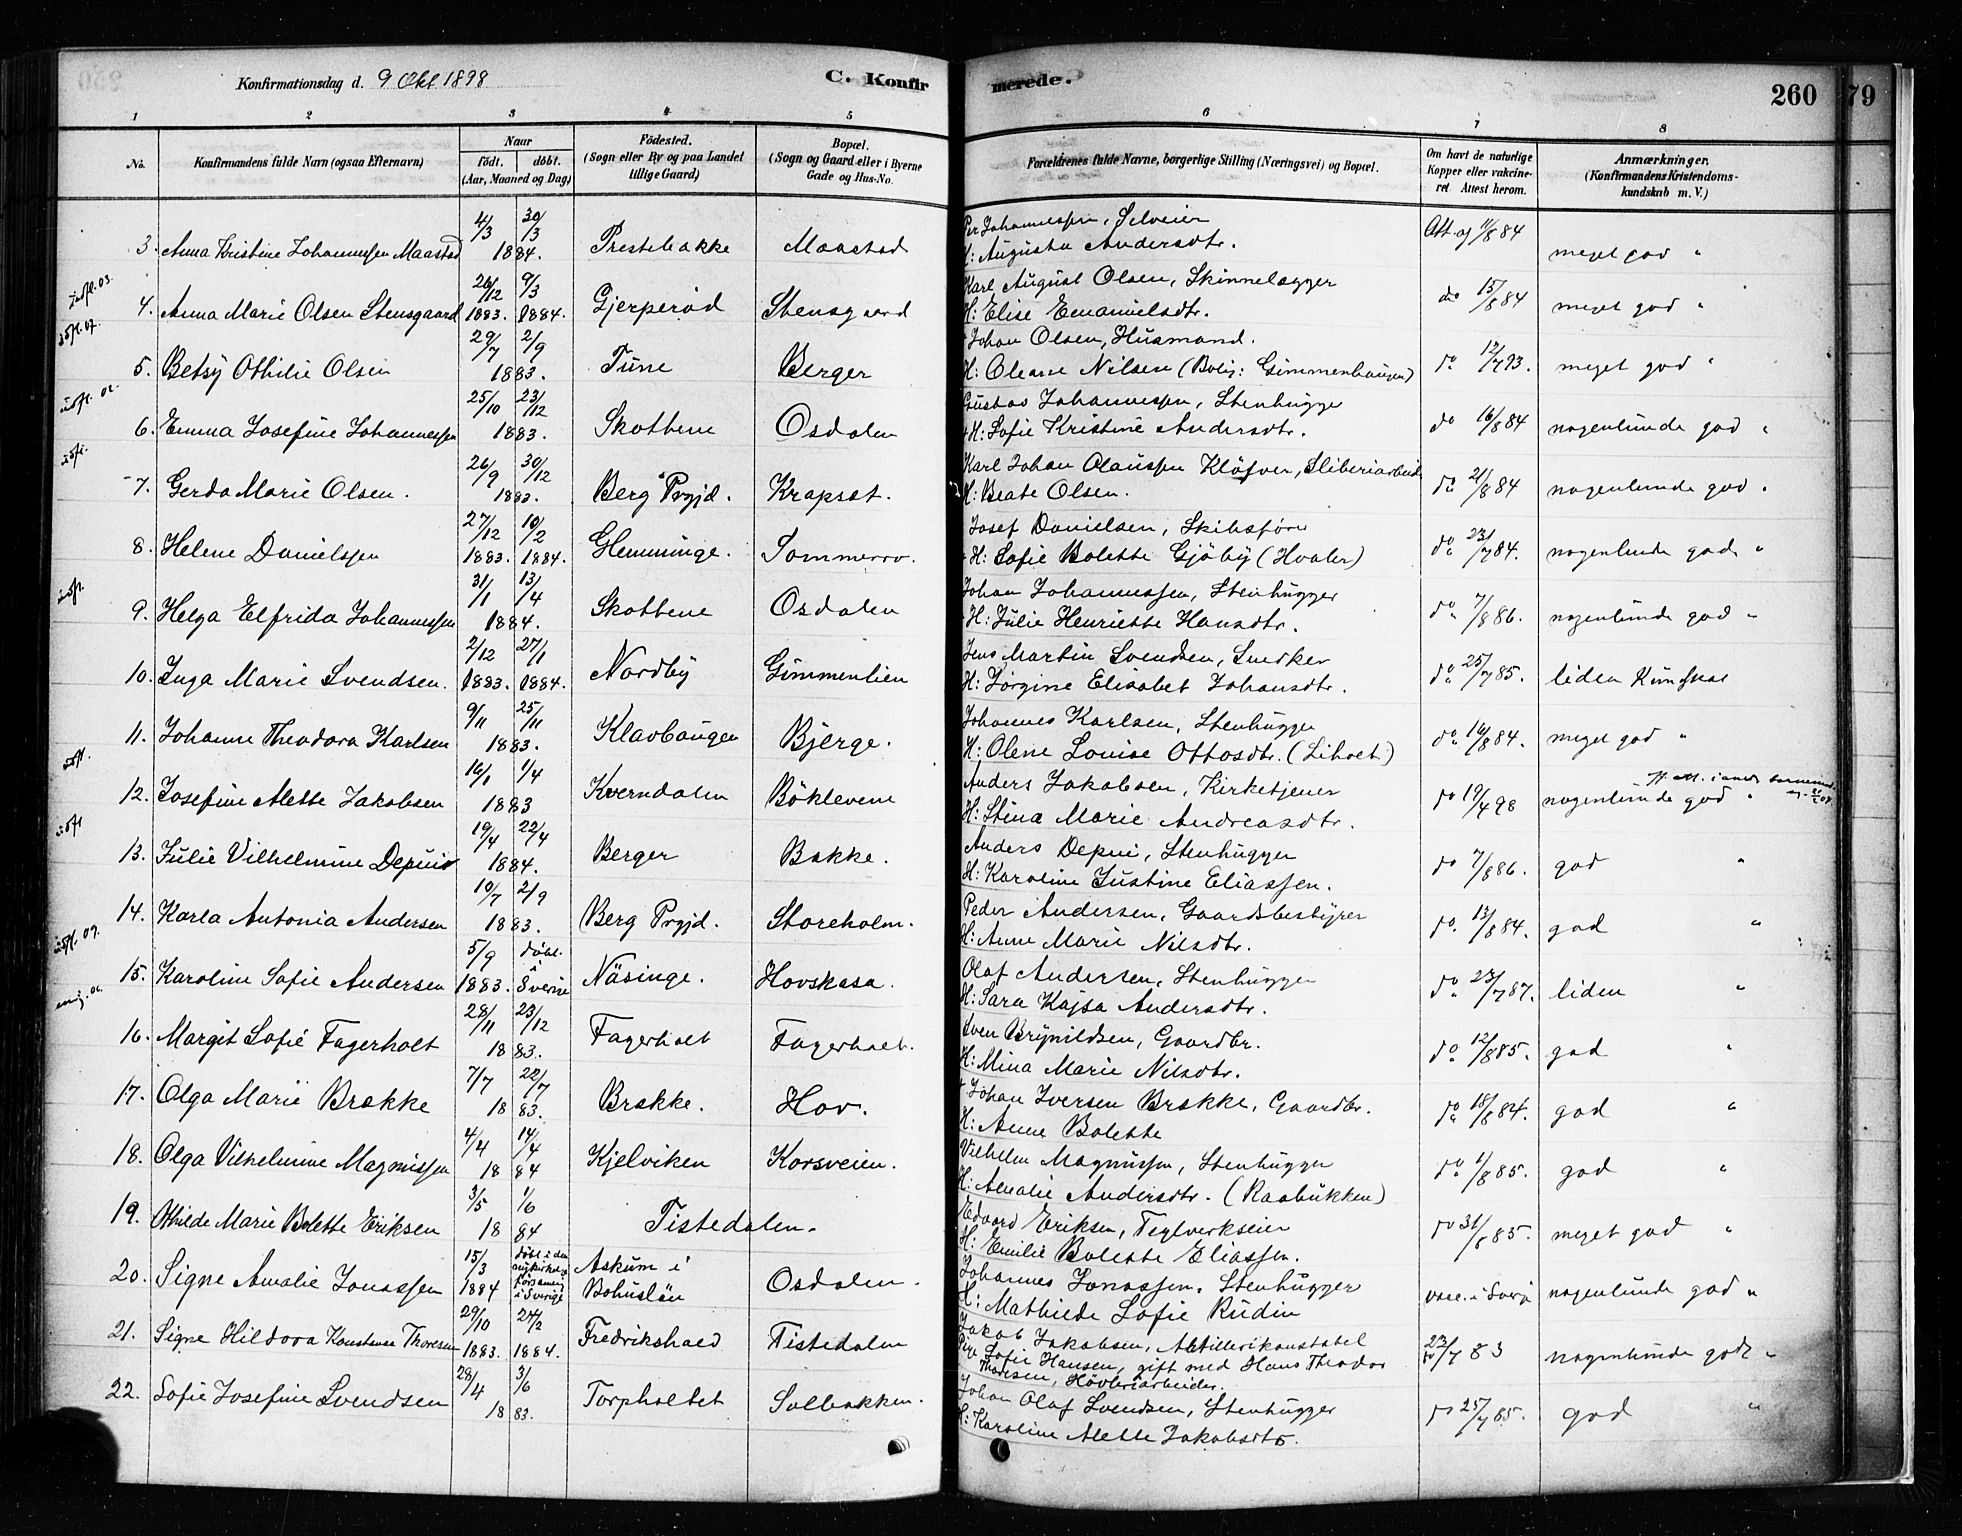 Konfirmationsdag d. 9 Okt 1898 C. Konfirmerede. 260 79
1 2 3 4 5 6 7 8
No. Konfirmandens fulde Navn (ogsaa Efternavn) Naar født. døbt. (Aar, Maaned og Dag) Fødested. (Sogn eller By og paa Landet tillige Gaard) Bopæl. (Sogn og Gaard eller i Byerne Gade og Hus-No. Forældrenes fulde Navne, borgerlige Stilling (Næringsvei) og Bopæl. Om havt de naturlige Kopper eller vakcineret. Attest herom. Anmærkninger. (Konfirmandens Kristendomskundskab m. V.)
3. Anna Kristine Johannessen Maastad 4/3 30/3 1884. Prestebakke Maastad Per Johannessen, Selveier
H: Augusta Andersdtr. Att. af 11/8 84 meget god "
4. Anna Marie Olsen Stensgaard 26/12 1883. 9/3 1884. Gjerperød Stensgaard Karl August Olsen, Skinnelægger
H: Elise Emanuelsdtr. do 15/8 84 meget god "
5. Betsy Othilie Olsen 29/7 2/9 1883. Tune Berger Johan Olsen, Husmand.
H: Oleane Nilsen (Bolig: Gimmenhaugen) do 12/7 93. meget god "
6. Emma Josefine Johannessen 25/10 23/12 1883. Skottene Osdalen Gustav Johannessen, Stenhugger
H: Sofie Kristine Andersdtr. do 16/8 84 nogenlunde god "
7. Gerda Marie Olsen. 26/9 30/12 1883. Berg Prgjd. Krapsæt. Karl Johan Olaussen Kløfver, Sliberiarbeid
H: Beate Olsen. do 21/8 84 nogenlunde god "
8. Helene Danielssen 27/12 1883. 10/2 1884. Glemminge. Sommerro. Josef Danielsen, Skibsfører
H: Sofie Bolette Gjøby (Hvaler) do 23/7 84. nogenlunde god "
9. Helga Elfrida Johannessen 31/1 13/4 1884. Skottene Osdalen Johan Johannessen, Stenhugger
H: Julie Henriette Hansdtr. do 7/8 86. nogenlunde god "
10. Inga Marie Svendsen. 2/12 1883. 27/1 1884. Nordby Gimmenlien Jens Martin Svendsen, Snedker
H: Jørgine Elisabet Johansdtr. do 25/7 85. liden Kundskab
11. Johanne Theodora Karlsen 9/11 25/11 1883. Klavhaugen Bjerge. Johannes Karlsen, Stenhugger
H: Olene Louise Ottosdtr. (Liholt) do 16/8 84. meget god "
12. Josefine Alette Jakobsen 16/1 1/4 1883 Kverndalen Bøklevene Anders Jakobsen, Kirketjener
H: Stina Marie Andreasdtr. do 19/4 98 nogenlunde god "
13. Julie Vilhelmine Depui 19/4 22/4 1884. Berger Bakke. Anders Depui, Stenhugger
H: Karoline Justine Eliassen. do 7/8 86. god "
14. Karla Antonia Andersen 10/7 2/9 1883. Berg Prgjd. Storeholm. Peder Andersen, Gaardsbestyrer
H: Anne Marie Nilsdtr. do. 13/8 84. god "
15. Karoline Sofie Andersen 5/9 1883. døbt i Sverige Näsinge. Hovskasa. Olaf Andersen, Stenhugger
H: Sara Kajsa Andersdtr. do 23/7 87. liden "
16. Margit Sofie Fagerholt 28/11 23/12 1883. Fagerholt Fagerholt. Sven Brynildsen, Gaardbr.
H: Mina Marie Nilsdtr. do 12/8 85. god "
17. Olga Marie Brække 7/7 22/7 1883. Brække. Hov. Johan Iversen Brække, Gaardbr.
H: Anne Bolette do 18/8 84. god "
18. Olga Vilhelmine Magnussen 4/4 14/4 1884 Kjelviken Korsveien. Vilhelm Magnussen, Stenhugger
H: Amalie Andersdtr. (Raabukken) do 1/8 85. god "
19. Othilde Marie Bolette Eriksen 3/5 1/6 1884 Tistedalen. Edvard Eriksen, Teglverkseier
H: Emilie Bolette Eliassen. do 31/8 85. meget god "
20. Signe Amalie Jonassen 15/3 1884 døbt i den nykirkelige forsamling i Sverige Askum i Bohuslän Osdalen. Johannes Jonassen, Stenhugger
H: Mathilde Sofie Rudin vacc. i Sverige nogenlunde god "
21. Signe Hildora Konstanse Thoresen 29/10 1883. 24/2 1884. Fredrikshald Tistedalen Jakob Jakobsen, Artillerikonstabel
Pige Sofie Hansen, gift med Hans Theodor
Thoresen, Høvleriarbeider. do 23/7 83 nogenlunde god "
22. Sofie Josefine Svendsen 28/4 3/6 1883. Torpholtet Solbakken. Johan Olaf Svendsen, Stenhugger
H: Karoline Alette Jakobsdtr. do 25/7 85. god "